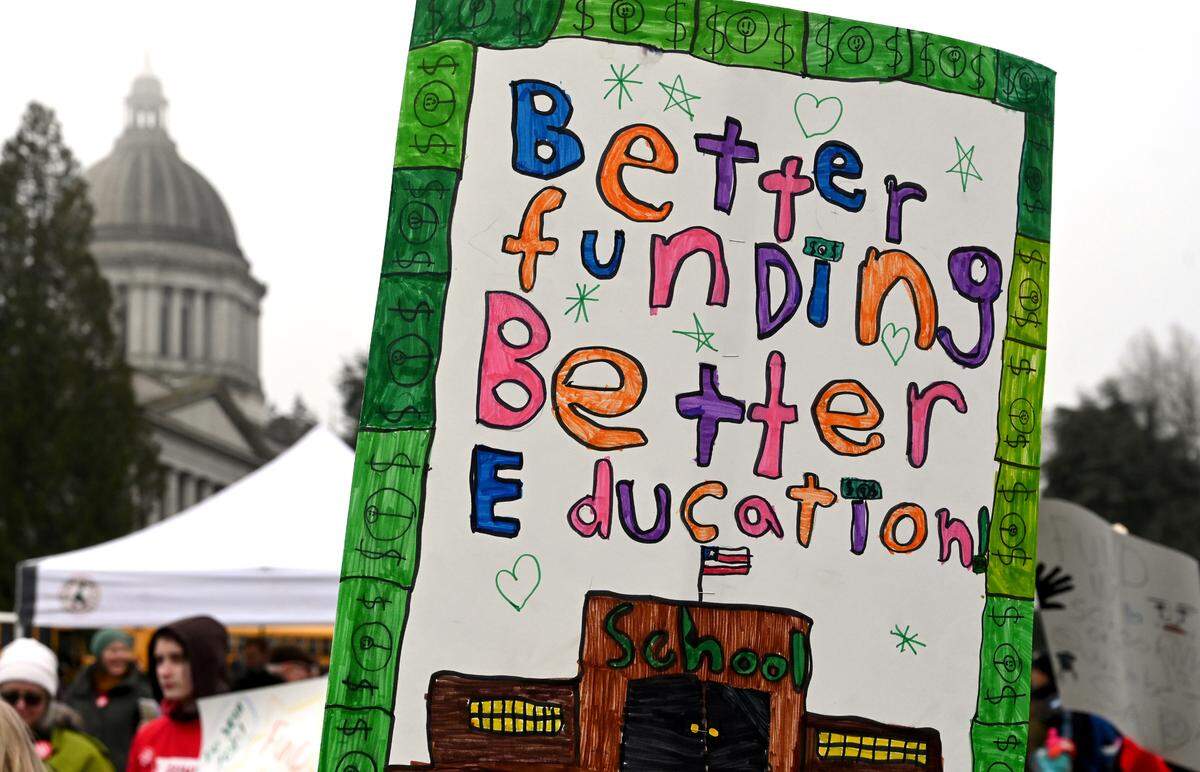 Better
funDing
Better
Education!
School